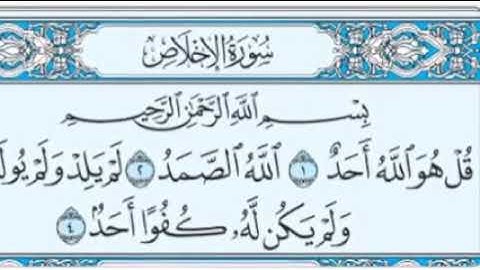 سُورَةُ الإِخْلَاصِ
بِسْمِ اللَّهِ الرَّحْمَٰنِ الرَّحِيمِ
قُلْ هُوَ اللَّهُ أَحَدٌ ١ اللَّهُ الصَّمَدُ ٢ لَمْ يَلِدْ وَلَمْ يُولَ
وَلَمْ يَكُن لَّهُۥ كُفُوًا أَحَدٌۢ ٤